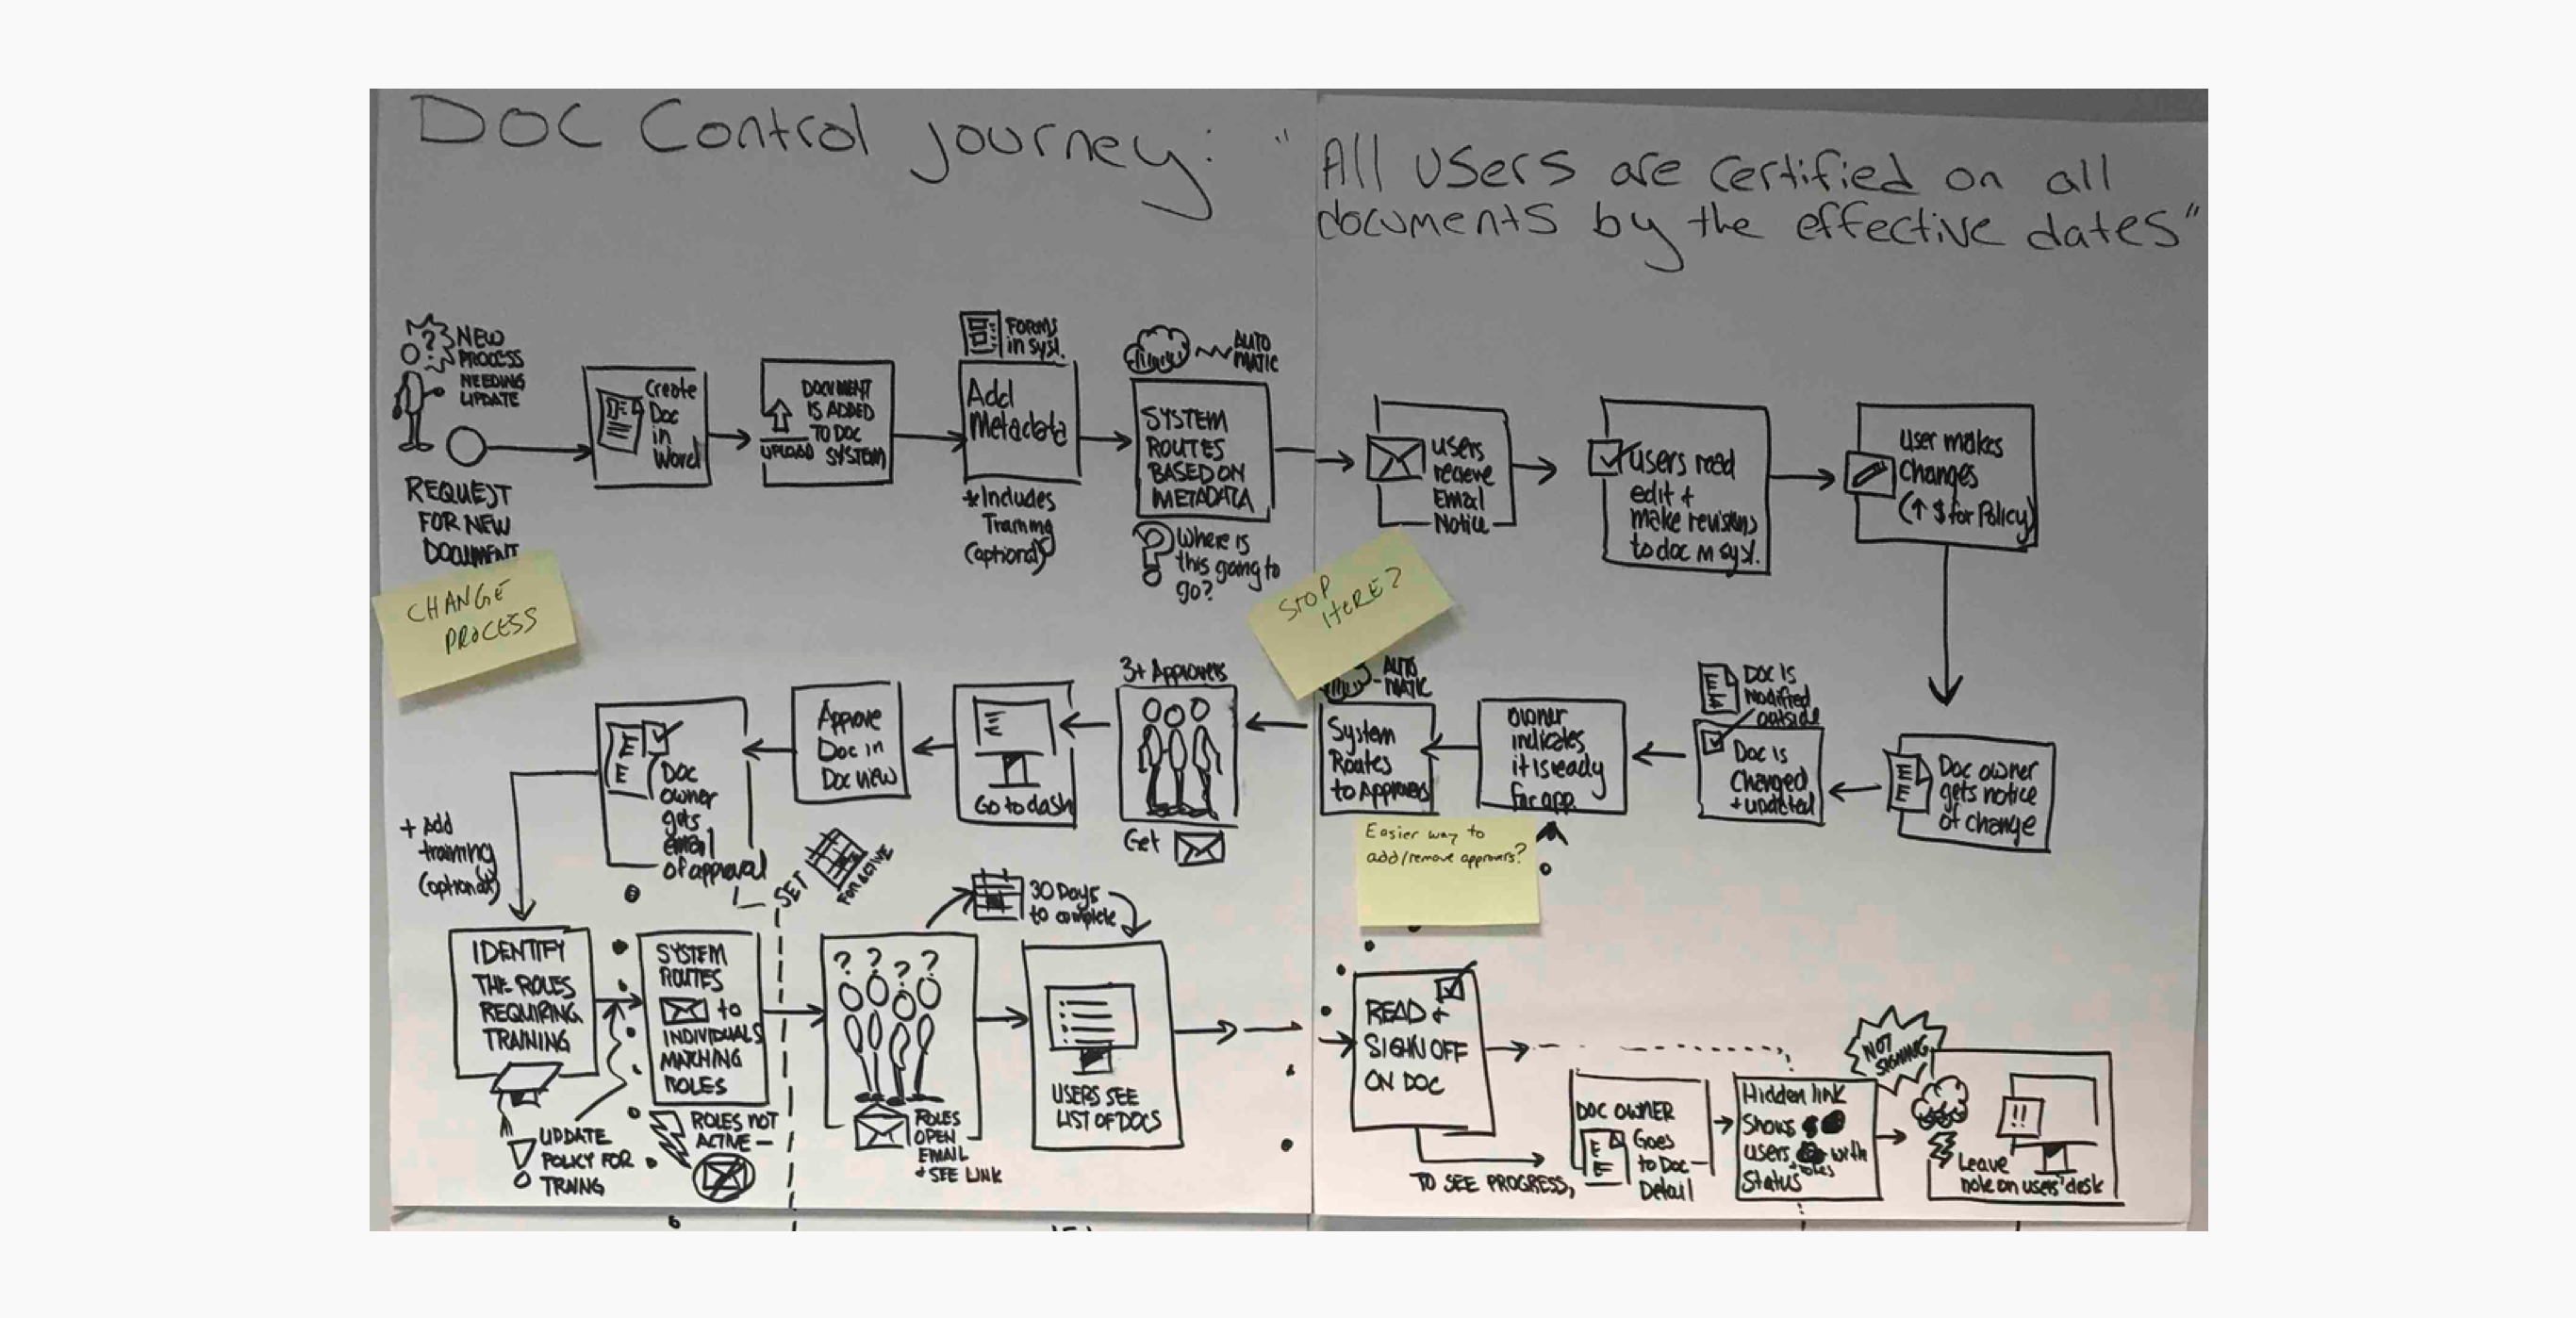 DOC Control journey: "All users are certified on all
documents by the effective dates"
NEW
PROCESS
NEEDING
UPDATE
REQUEST
FOR NEW
DOCUMENT
Create
Doc
in
Word
DOCUMENT
IS ADDED
TO DOC
SYSTEM
UPLOAD
FORMS
in syst.
Add
Metadata
*Includes
Training
(optional)
AUTO
MATIC
SYSTEM
ROUTES
BASED ON
METADATA
? Where is
this going to
go?
users
recieve
Email
Notice
users read
edit +
make revisions
to doc in syst.
User makes
Changes
(↑ $ for Policy)
CHANGE
PROCESS
STOP
HERE?
Doc owner
gets notice
of change
DOC IS
Modified
outside
Doc is
Changed
+ updated
owner
indicates
it is ready
for app.
AUTO
MATIC
System
Routes
to Approvers
Easier way to
add/remove approvers?
3+ Approvers
Get
Go to dash
Approve
Doc in
Doc view
Doc
owner
gets
email
of approval
SET
FOR ACTIVE
+ Add
training
(optional)
IDENTIFY
THE ROLES
REQUIRING
TRAINING
UPDATE
POLICY FOR
TRNING
SYSTEM
ROUTES
to
INDIVIDUALS
MATCHING
ROLES
ROLES NOT
ACTIVE —
? ? ? ?
ROLES
OPEN
EMAIL
+ SEE LINK
30 Days
to complete
USERS SEE
LIST OF DOCS
READ +
SIGN OFF
ON DOC
TO SEE PROGRESS,
DOC OWNER
Goes
to Doc
Detail
Hidden link
Shows
users with
+ roles
Status
NOT
SIGNING
!!
Leave
note on users' desk